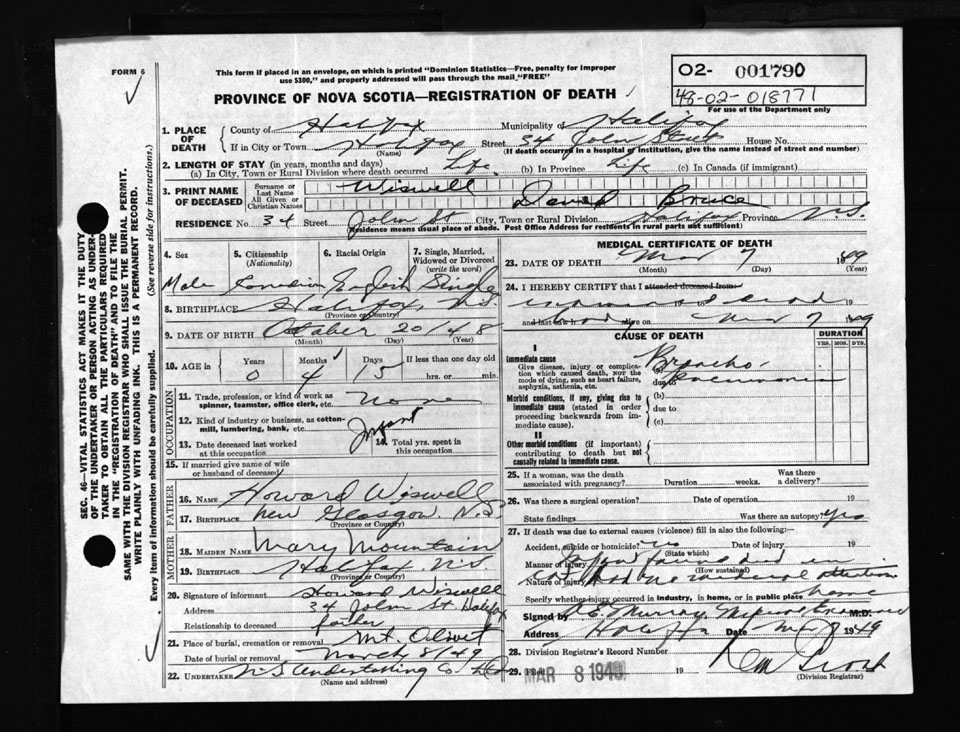 FORM 6
This form if placed in an envelope, on which is printed "Dominion Statistics—Free, penalty for improper
use $300," and properly addressed will pass through the mail "FREE"
O2- 001790
48-02-018771
For use of the Department only
PROVINCE OF NOVA SCOTIA—REGISTRATION OF DEATH
1. PLACE OF DEATH
County of Halifax Municipality of Halifax
If in City or Town Halifax Street 34 John Street House No.
(Name) (If death occurred in a hospital or institution, give the name instead of street and number)
2. LENGTH OF STAY (in years, months and days)
(a) In City, Town or Rural Division where death occurred Life (b) In Province Life (c) In Canada (if immigrant)
3. PRINT NAME OF DECEASED
Surname or Last Name Wiswell
All Given or Christian Names David Bruce
RESIDENCE No. 34 Street John St City, Town or Rural Division Halifax Province N.S.
(Residence means usual place of abode. Post Office Address for residents in rural parts not sufficient)
4. Sex
5. Citizenship (Nationality)
6. Racial Origin
7. Single, Married, Widowed or Divorced (write the word)
Male Canadian English Single
8. BIRTHPLACE Halifax, N.S.
(Province or Country)
9. DATE OF BIRTH October 20/48
(Month) (Day) (Year)
10. AGE in Years Months Days If less than one day old
0 4 15 hrs. or min.
OCCUPATION
11. Trade, profession, or kind of work as spinner, teamster, office clerk, etc. none
12. Kind of industry or business, as cotton-mill, lumbering, bank, etc. Infant
13. Date deceased last worked at this occupation
14. Total yrs. spent in this occupation
15. If married give name of wife or husband of deceased
FATHER
16. Name Howard Wiswell
17. Birthplace New Glasgow N.S.
(Province or Country)
MOTHER
18. Maiden Name Mary Mountain
19. Birthplace Halifax, N.S.
(Province or Country)
20. Signature of informant Howard Wiswell
Address 34 John St Halifax
Relationship to deceased father
21. Place of burial, cremation or removal Mt. Olivet
Date of burial or removal March 8/49
22. UNDERTAKER N.S. Undertaking Co. Ltd
(Name and address)
MEDICAL CERTIFICATE OF DEATH
23. DATE OF DEATH Mar 7 1949
(Month) (Day) (Year)
24. I HEREBY CERTIFY that I attended deceased from
examined dead 19
and last saw h alive on body Mar 7 1949
CAUSE OF DEATH
DURATION
YRS. MOS. DYS.
I
Immediate cause
Give disease, injury or complication which caused death, NOT the mode of dying, such as heart failure, asphyxia, asthenia, etc.
(a) Broncho-
due to pneumonia
Morbid conditions, if any, giving rise to immediate cause (stated in order proceeding backwards from immediate cause).
(b)
due to
(c)
II
Other morbid conditions (if important) contributing to death but not causally related to immediate cause.
25. If a woman, was the death associated with pregnancy? Duration weeks. Was there a delivery?
26. Was there a surgical operation? Date of operation 19
State findings Was there an autopsy? Yes
27. If death was due to external causes (violence) fill in also the following:—
Accident, suicide or homicide? no Date of injury 19
(State which)
Manner of injury found dead in
(How sustained)
Nature of injury Had no medical attention
Specify whether injury occurred in industry, in home, or in public place home
Signed by D. E. Murray, Medical Examiner M.D.
Address Halifax Date Mar 7 1949
28. Division Registrar's Record Number
29. Filed MAR 8 1949 19
(Division Registrar)
SEC. 46—VITAL STATISTICS ACT MAKES IT THE DUTY
OF THE UNDERTAKER OR PERSON ACTING AS UNDER-
TAKER TO OBTAIN ALL THE PARTICULARS REQUIRED
IN THE "REGISTRATION OF DEATH" AND TO FILE THE
SAME WITH THE DIVISION REGISTRAR WHO SHALL ISSUE THE BURIAL PERMIT.
WRITE PLAINLY WITH UNFADING INK. THIS IS A PERMANENT RECORD.
Every item of information should be carefully supplied. (See reverse side for instructions.)